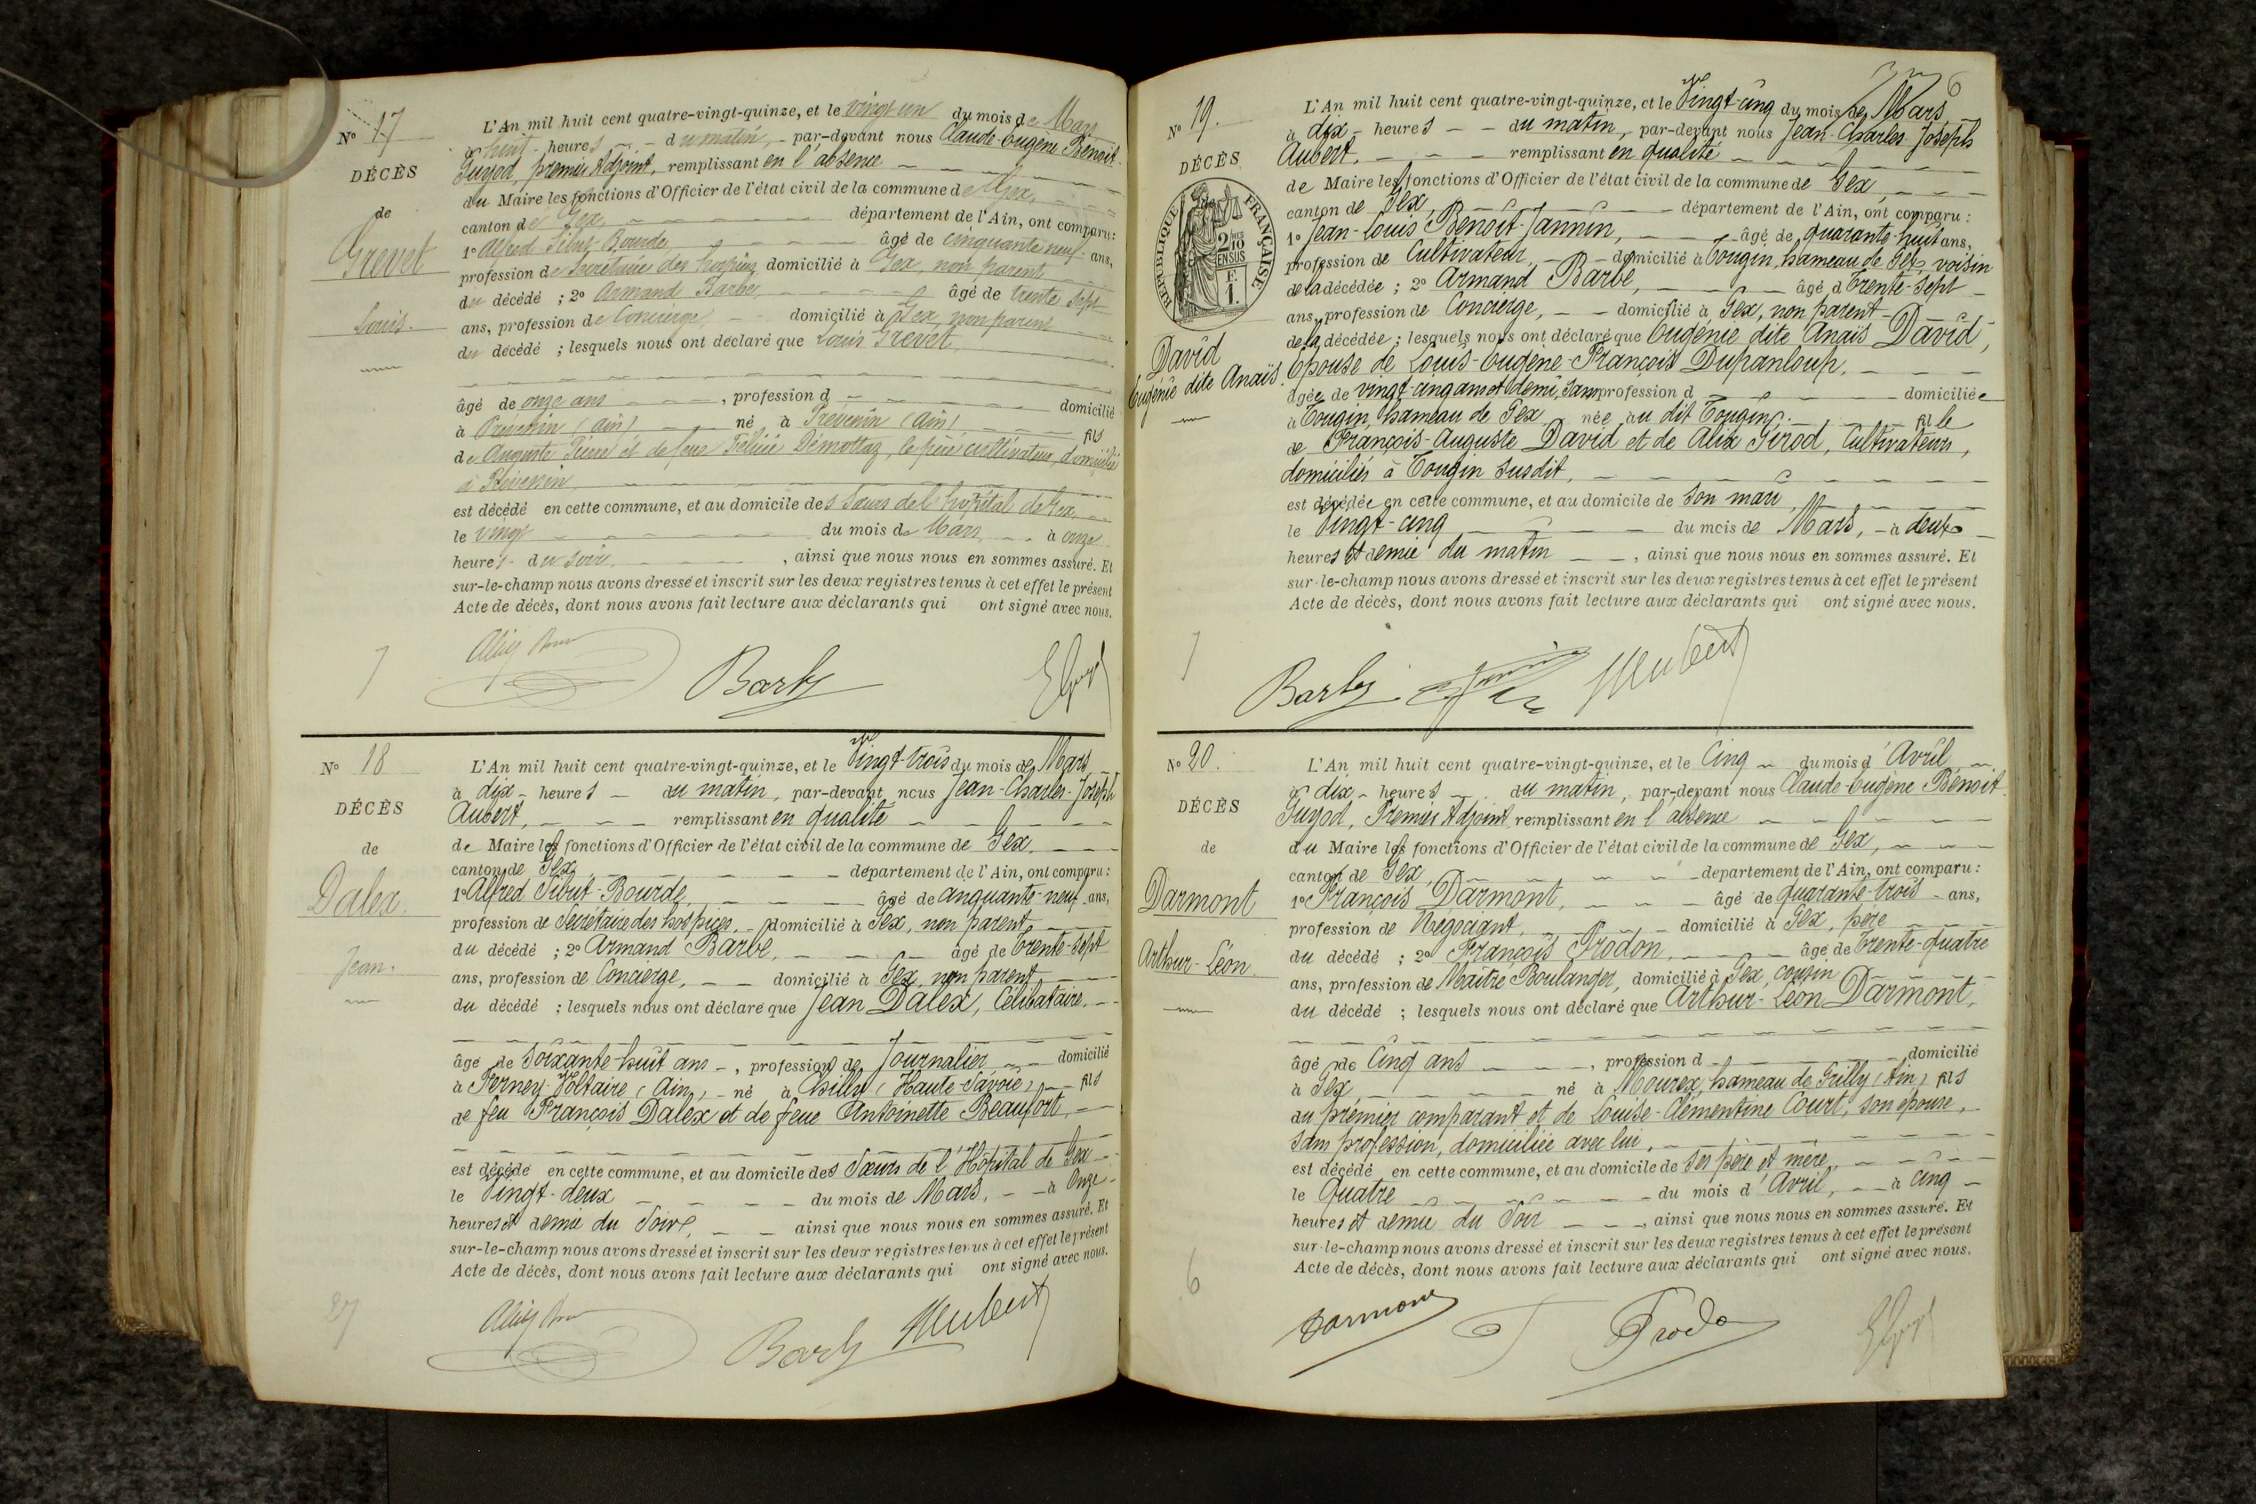 Nº 17
DÉCÈS
de
Grevet
Louis.
L'An mil huit cent quatre-vingt-quinze, et le vingt un du mois de Mars
à huit heures du matin, par-devant nous Claude-Eugène Benoit
Guyod, premier Adjoint, remplissant en l'absence
du Maire les fonctions d'Officier de l'état civil de la commune de Gex,
canton de Gex, département de l'Ain, ont comparu :
1º Alfred Sibut-Bourde âgé de cinquante neuf ans,
profession de Secrétaire des hospices, domicilié à Gex, non parent
du décédé ; 2º Armand Barbe âgé de trente sept
ans, profession de Concierge domicilié à Gex, non parent
du décédé ; lesquels nous ont déclaré que Louis Grevet
âgé de onze ans , profession d domicilié
à Prevenin (Ain) né à Prevenin (Ain) fils
de Auguste Pierre et de feue Félicie Démottaz, le père cultivateur, domicilié
à Prévenin
est décédé en cette commune, et au domicile des Sœurs de l'hopital de Gex
le vingt du mois de Mars à onze
heures du soir, ainsi que nous nous en sommes assuré. Et
sur-le-champ nous avons dressé et inscrit sur les deux registres tenus à cet effet le présent
Acte de décès, dont nous avons fait lecture aux déclarants qui ont signé avec nous.
Barby
Nº 18
DÉCÈS
de
Dalex.
Jean.
L'An mil huit cent quatre-vingt-quinze, et le Vingt-trois du mois de Mars
à dix heures du matin, par-devant nous Jean-Charles-Joseph
Aubert, remplissant en qualité
de Maire les fonctions d'Officier de l'état civil de la commune de Gex,
canton de Gex département de l'Ain, ont comparu :
1º Alfred Sibut-Bourde, âgé de cinquante-neuf ans,
profession de Secrétaire des hospices, domicilié à Gex, non parent
du décédé ; 2º Armand Barbe, âgé de Trente-sept
ans, profession de Concierge, domicilié à Gex, non parent
du décédé ; lesquels nous ont déclaré que Jean Dalex, Célibataire,
âgé de soixante-huit ans , profession de Journalier domicilié
à Ferney-Voltaire (Ain), né à Chilly (Haute-Savoie), fils
de feu François Dalex et de feue Antoinette Beaufort,
est décédé en cette commune, et au domicile des Sœurs de l'Hôpital de Gex
le Vingt-deux du mois de Mars, à Onze
heures et demie du Soir, ainsi que nous nous en sommes assuré. Et
sur-le-champ nous avons dressé et inscrit sur les deux registres tenus à cet effet le présent
Acte de décès, dont nous avons fait lecture aux déclarants qui ont signé avec nous.
Barby Aubert
6
Nº 19.
DÉCÈS
RÉPUBLIQUE FRANÇAISE
2/10 EN SUS
F. 1.
David
Eugénie dite Anaïs.
L'An mil huit cent quatre-vingt-quinze, et le Vingt-cinq du mois de Mars
à dix heures du matin, par-devant nous Jean-Charles-Joseph
Aubert, remplissant en qualité
de Maire les fonctions d'Officier de l'état civil de la commune de Gex,
canton de Gex, département de l'Ain, ont comparu :
1º Jean-Louis Benoit-Jannin, âgé de quarante-huit ans,
profession de Cultivateur, domicilié à Tougin, hameau de Gex, voisin
de la décédée ; 2º Armand Barbe, âgé d Trente-Sept
ans, profession de Concierge, domicilié à Gex, non parent
de la décédée ; lesquels nous ont déclaré que Eugénie dite Anaïs David,
Epouse de Louis-Eugène-François Dupanloup,
âgée de vingt-cinq ans et demi, sans profession d domiciliée
à Tougin, hameau de Gex née au dit Tougin, fille
de François-Auguste David et de Alix Girod, Cultivateurs,
domiciliés à Tougin susdit,
est décédée en cette commune, et au domicile de son mari,
le Vingt-cinq du mois de Mars, à deux
heures et demie du matin , ainsi que nous nous en sommes assuré. Et
sur-le-champ nous avons dressé et inscrit sur les deux registres tenus à cet effet le présent
Acte de décès, dont nous avons fait lecture aux déclarants qui ont signé avec nous.
Barby Aubert
Nº 20.
DÉCÈS
de
Darmont
Arthur-Léon
L'An mil huit cent quatre-vingt-quinze, et le Cinq du mois d'Avril
à dix heures du matin, par-devant nous Claude-Eugène Benoit
Guyod, Premier Adjoint, remplissant en l'absence
du Maire les fonctions d'Officier de l'état civil de la commune de Gex,
canton de Gex, département de l'Ain, ont comparu :
1º François Darmont, âgé de quarante-trois ans,
profession de Négociant, domicilié à Gex, père
du décédé ; 2º François Prodon, âgé de Trente-quatre
ans, profession de Maître Boulanger, domicilié à Gex, cousin
du décédé ; lesquels nous ont déclaré que Arthur-Léon Darmont,
âgé de Cinq ans , profession d domicilié
à Gex né à Mourex, hameau de Grilly (Ain) fils
du premier comparant et de Louise-Clémentine Court, son épouse,
sans profession, domiciliée avec lui,
est décédé en cette commune, et au domicile de ses père et mère,
le Quatre du mois d'Avril, à Cinq
heures et demie du Soir , ainsi que nous nous en sommes assuré. Et
sur-le-champ nous avons dressé et inscrit sur les deux registres tenus à cet effet le présent
Acte de décès, dont nous avons fait lecture aux déclarants qui ont signé avec nous.
6
Darmont